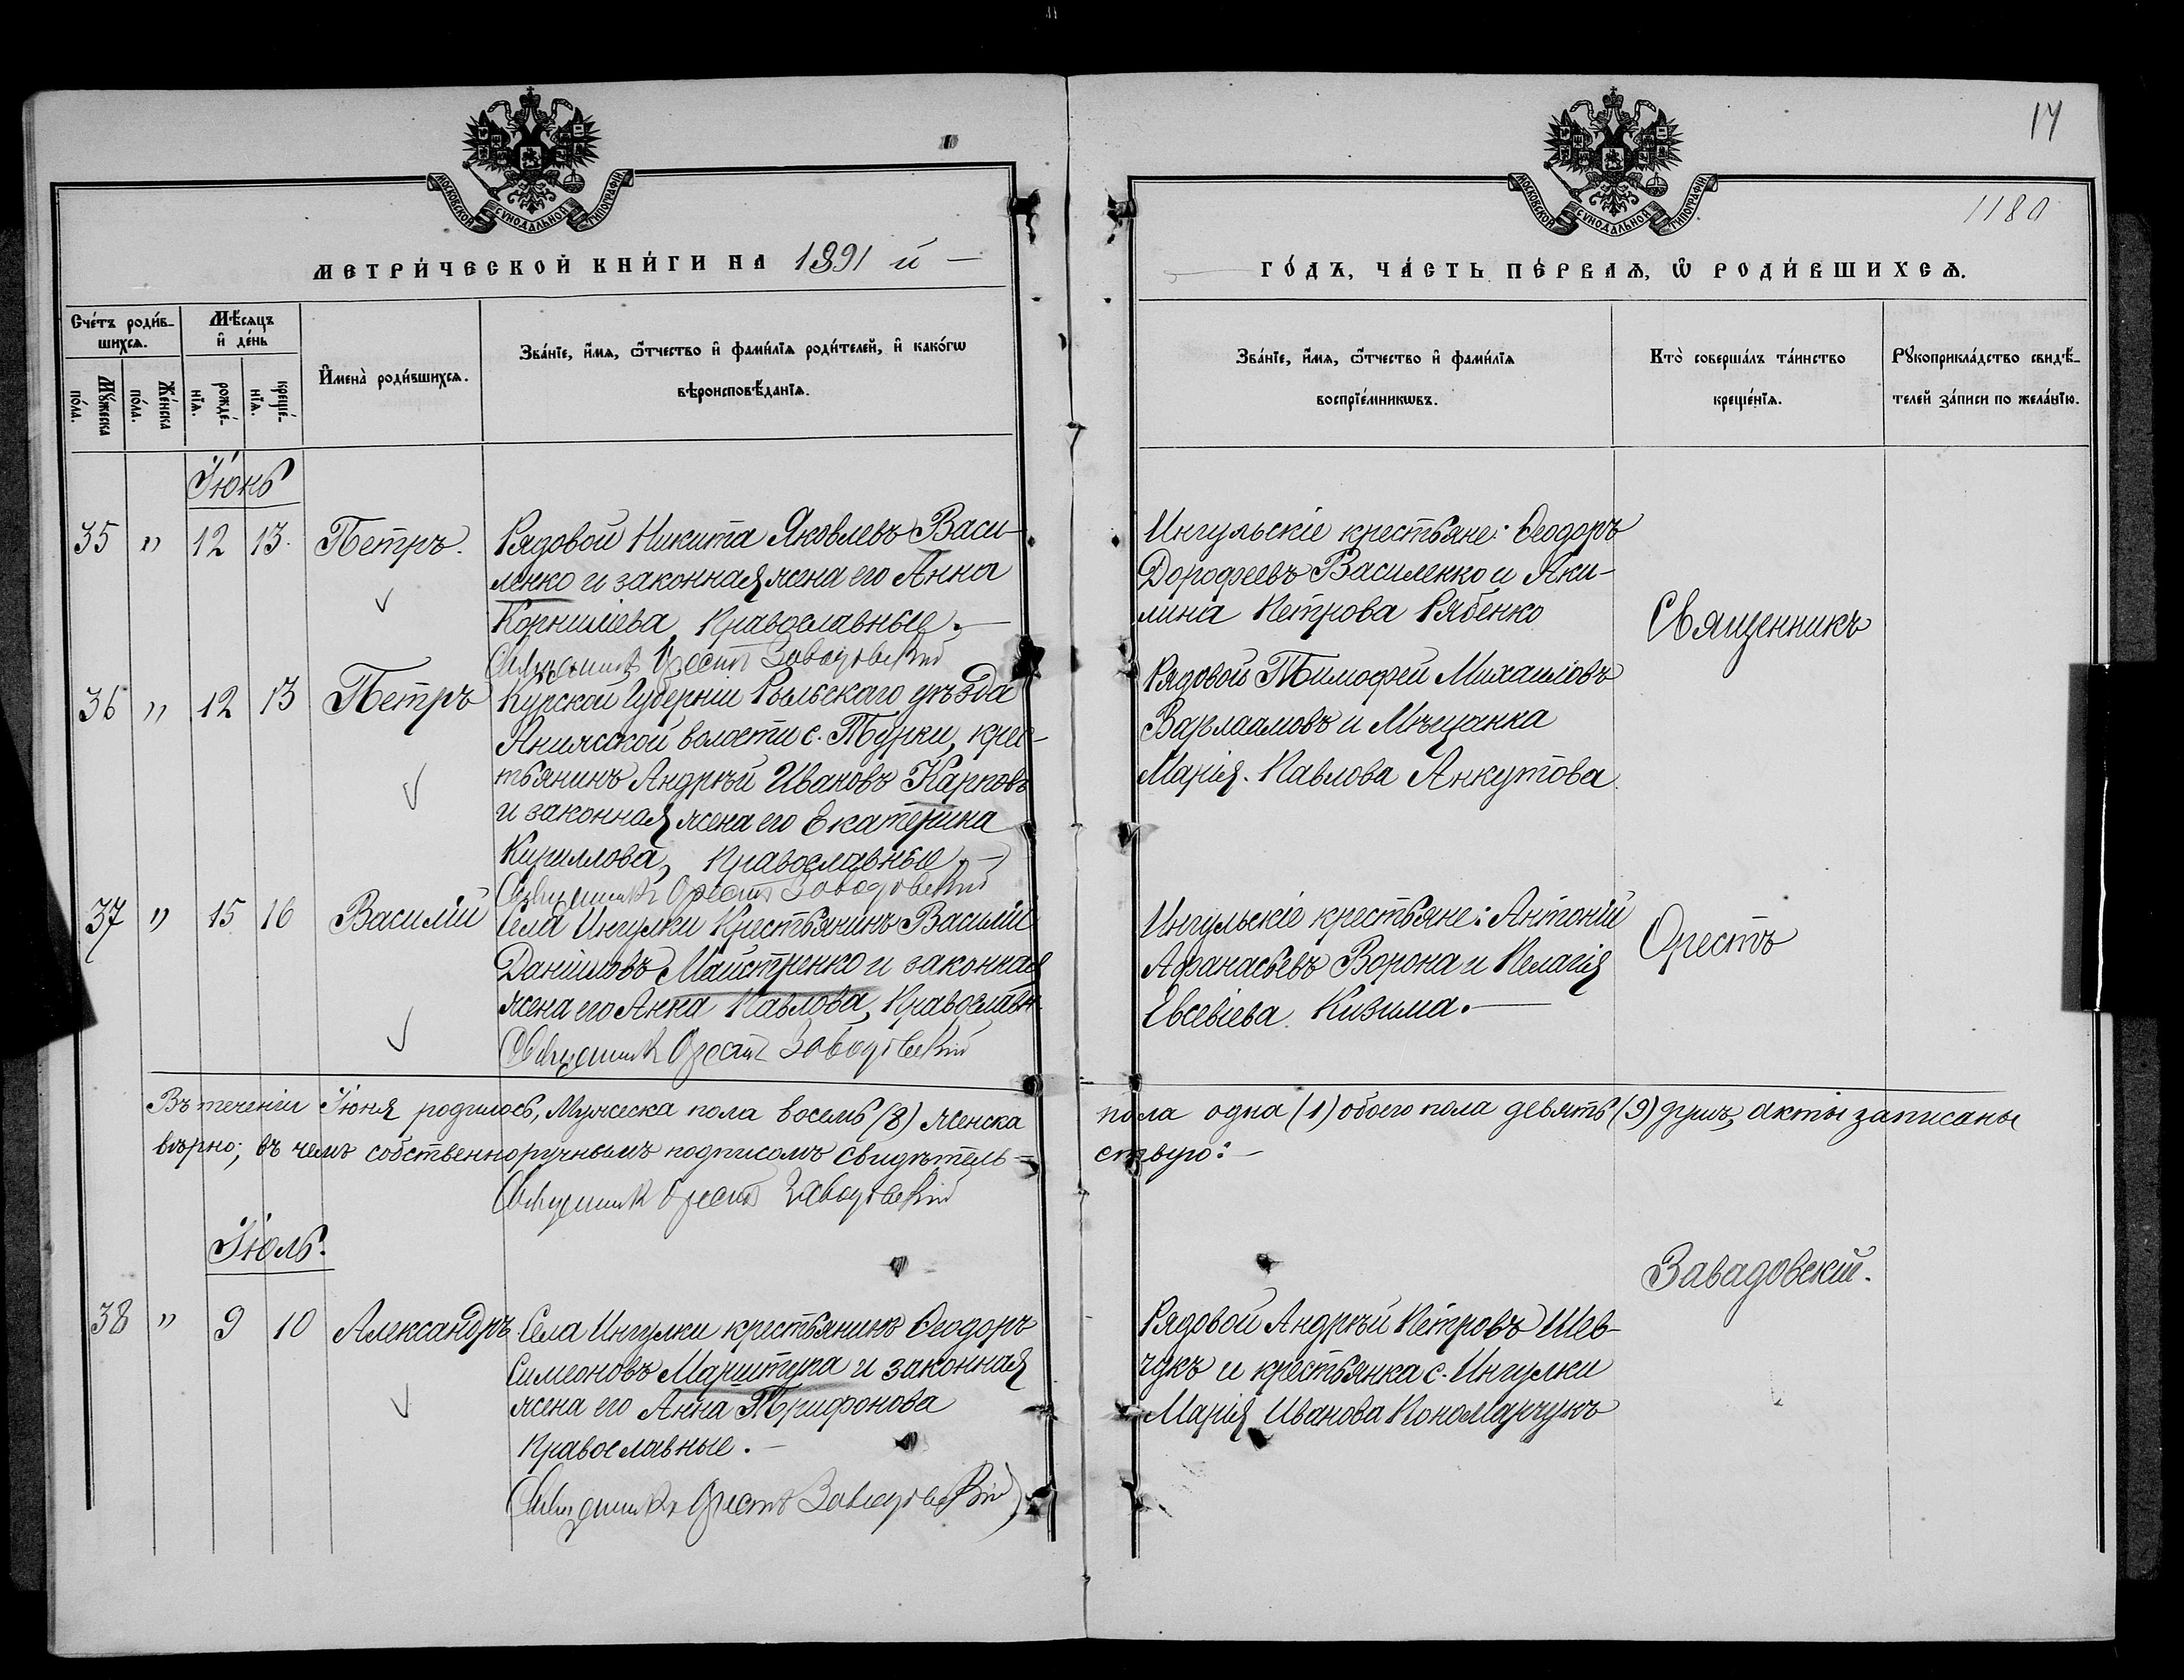 17
1180
МОСКОВСКОЙ СУНОДАЛЬНОЙ ТИПОГРАФІИ
МОСКОВСКОЙ СУНОДАЛЬНОЙ ТИПОГРАФІИ
МЕТРИ́ЧЕСКОЙ КНИ́ГИ НА 1891 й —
ГО́ДЪ, ЧА́СТЬ ПЕ́РВАѦ, Ѽ РОДИ́ВШИХСѦ.
Сче́тъ роди́в-
шихсѧ.
Мѣ́сѧцъ
и҆ де́нь
Мꙋ́жеска
по́ла.
Же́нска
по́ла.
рожде́-
нїѧ.
креще́-
нїѧ.
И҆мена̀ роди́вшихсѧ.
Зва́нїе, и҆́мѧ, ѻ҆́тчество и҆ фами́лїѧ роди́телей, и҆ како́гѡ
вѣроисповѣ́данїѧ.
Зва́нїе, и҆́мѧ, ѻ҆́тчество и҆ фами́лїѧ
воспрїе́мникѡвъ.
Кто̀ соверша́лъ та́инство
креще́нїѧ.
Рꙋкоприкла́дство свидѣ́-
телей за́писи по жела́нїю.
Іюнь
35 " 12 13. Петръ. Рядовой Никита Яковлевъ Васи-
ленко и законная жена его Анна
Корниліева, Православные. —
Священникъ Орестъ Завадовскій
Ингульскіе крестьяне: Ѳеодоръ
Дорофеевъ Василенко и Аки-
лина Петрова Рябенко
Священникъ
36 " 12 13 Петръ Курской Губерніи Рыльскаго уѣзда
волости с. Турки, крес-
тьянинъ Андрѣй Ивановъ Карповъ
и законная жена его Екатерина
Кириллова, Православные —
Священникъ Орестъ Завадовскій
Рядовой Тимофей Михаиловъ
Варлаамовъ и Мѣщанка
Марія Павлова Анкутова.
37 " 15 16 Василій Села Ингулки Крестьянинъ Василій
Даніиловъ Майстренко и законная
жена его Анна Павлова, Православн.
Священникъ Орестъ Завадовскій
Ингульскіе крестьяне: Антоній
Афанасьевъ Ворона и Пелагія
Евсевіева Кизима. —
Орестъ
Въ теченіи Іюня родилось, Мужеска пола восемь (8) женска
пола одна (1) обоего пола девять (9) душъ, акты записаны
вѣрно; въ чемъ собственноручнымъ подписомъ свидѣтель-
ствую: —
Священникъ Орестъ Завадовскій
Іюль.
Завадовскій.
38 " 9 10 Александръ Села Ингулки крестьянинъ Ѳеодоръ
Симеоновъ Марштупа и законная
жена его Анна Трифонова
Православные. —
Священникъ Орестъ Завадовскій
Рядовой Андрѣй Петровъ Шев-
чукъ и крестьянка с. Ингулки
Марія Иванова Пономарчукъ